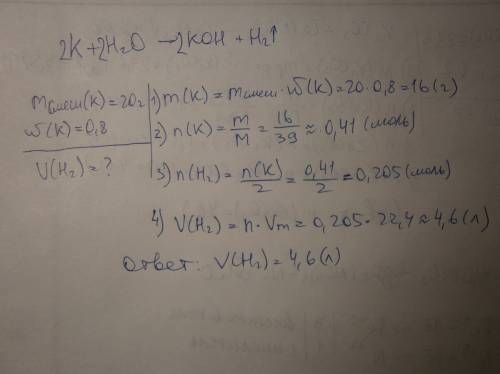 2K+2H₂O →2KOH + H₂↑
mсмеси(K)=20г
ω(K)=0,8
V(H₂)=?
1) m(K)=mсмеси·ω(K)=20·0,8=16(г)
2) n(K)=m/M=16/39≈0,41(моль)
3) n(H₂)=n(K)/2=0,41/2=0,205(моль)
4) V(H₂)=n·Vm=0,205·22,4≈4,6(л)
Ответ: V(H₂)=4,6(л)